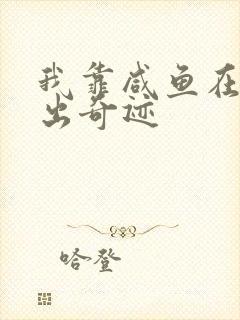 我靠咸鱼在
出奇迹
哈登